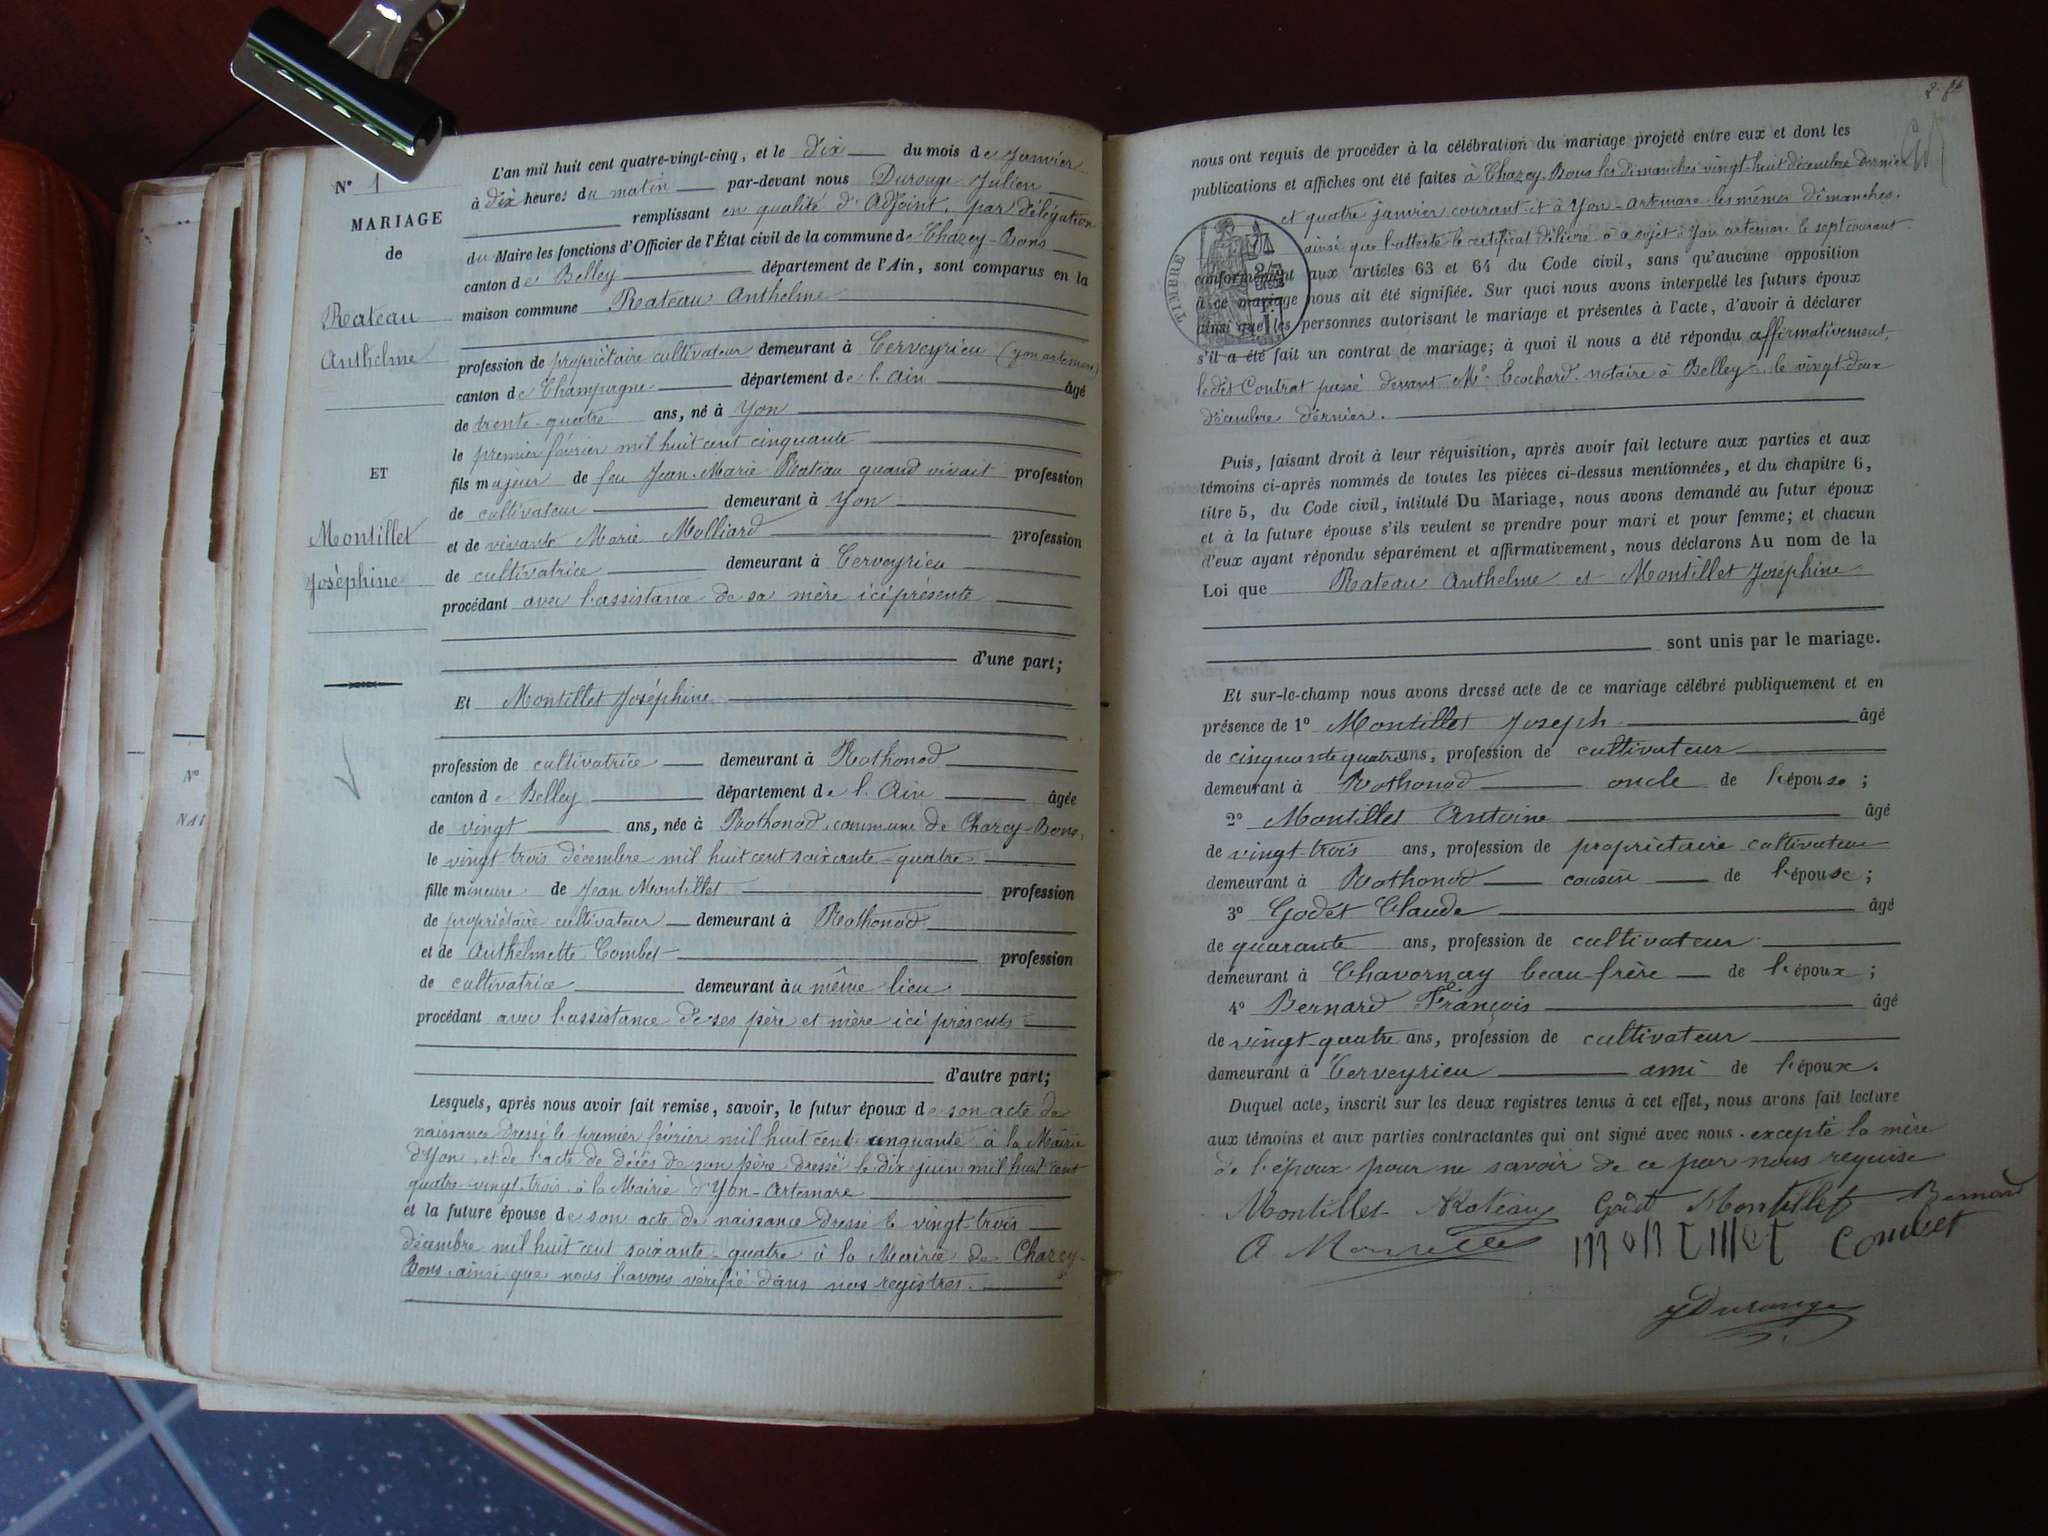 N° 1
MARIAGE
de
Rateau
Anthelme
ET
Montillet
Joséphine
N°
L'an mil huit cent quatre-vingt-cinq, et le dix du mois de Janvier
à dix heures du matin par-devant nous Durouge Julien
remplissant en qualité d'Adjoint, par délégation
du Maire les fonctions d'Officier de l'État civil de la commune de Chazey-Bons
canton de Belley département de l'Ain, sont comparus en la
maison commune Rateau Anthelme
profession de propriétaire cultivateur demeurant à Cerveyrieu (yon artemare)
canton de Champagne département de l'Ain âgé
de trente-quatre ans, né à Yon
le premier février mil huit cent cinquante
fils majeur de feu Jean-Marie Rateau quand vivait profession
de cultivateur demeurant à Yon
et de vivante Marie Molliard profession
de cultivatrice demeurant à Cerveyrieu
procédant avec l'assistance de sa mère ici présente
d'une part;
Et Montillet Joséphine
profession de cultivatrice demeurant à Rothonod
canton de Belley département de l'Ain âgée
de vingt ans, née à Rothonod, commune de Chazey-Bons,
le vingt trois décembre mil huit cent soixante-quatre
fille mineure de Jean Montillet profession
de propriétaire cultivateur demeurant à Rothonod
et de Anthelmette Combet profession
de cultivatrice demeurant au même lieu
procédant avec l'assistance de ses père et mère ici présents
d'autre part;
Lesquels, après nous avoir fait remise, savoir, le futur époux de son acte de
naissance dressé le premier février mil huit cent cinquante à la Mairie
d'Yon, et de l'acte de décès de son père dressé le dix juin mil huit cent
quatre-vingt-trois à la Mairie d'Yon-Artemare
et la future épouse de son acte de naissance dressé le vingt-trois
décembre mil huit cent soixante-quatre à la Mairie de Chazey-
Bons, ainsi que nous l'avons vérifié dans nos registres.
nous ont requis de procéder à la célébration du mariage projeté entre eux et dont les
publications et affiches ont été faites à Chazey-Bons les dimanches vingt-huit décembre dernier
et quatre janvier courant et à Yon-Artemare les mêmes dimanches,
ainsi que l'atteste le certificat délivré à ce sujet à Yon artemare le sept courant.
TIMBRE
conformément aux articles 63 et 64 du Code civil, sans qu'aucune opposition
à ce mariage nous ait été signifiée. Sur quoi nous avons interpellé les futurs époux
ainsi que les personnes autorisant le mariage et présentes à l'acte, d'avoir à déclarer
s'il a été fait un contrat de mariage; à quoi il nous a été répondu affirmativement,
le dit Contrat passé devant Me Cochard notaire à Belley le vingt-deux
décembre dernier.
Puis, faisant droit à leur réquisition, après avoir fait lecture aux parties et aux
témoins ci-après nommés de toutes les pièces ci-dessus mentionnées, et du chapitre 6,
titre 5, du Code civil, intitulé Du Mariage, nous avons demandé au futur époux
et à la future épouse s'ils veulent se prendre pour mari et pour femme; et chacun
d'eux ayant répondu séparément et affirmativement, nous déclarons Au nom de la
Loi que Rateau Anthelme et Montillet Joséphine
sont unis par le mariage.
Et sur-le-champ nous avons dressé acte de ce mariage célébré publiquement et en
présence de 1° Montillet Joseph âgé
de cinquante quatre ans, profession de cultivateur
demeurant à Rothonod oncle de l'épouse;
2° Montillet Antoine âgé
de vingt-trois ans, profession de propriétaire cultivateur
demeurant à Rothonod cousin de l'épouse;
3° Godet Claude âgé
de quarante ans, profession de cultivateur
demeurant à Chavornay beau-frère de l'époux;
4° Bernard François âgé
de vingt-quatre ans, profession de cultivateur
demeurant à Cerveyrieu ami de l'époux.
Duquel acte, inscrit sur les deux registres tenus à cet effet, nous avons fait lecture
aux témoins et aux parties contractantes qui ont signé avec nous. excepté la mère
de l'époux pour ne savoir de ce par nous requise
Montillet Rateau Godet Montillet Bernard
A Montillet montillet Combet
J Durouge